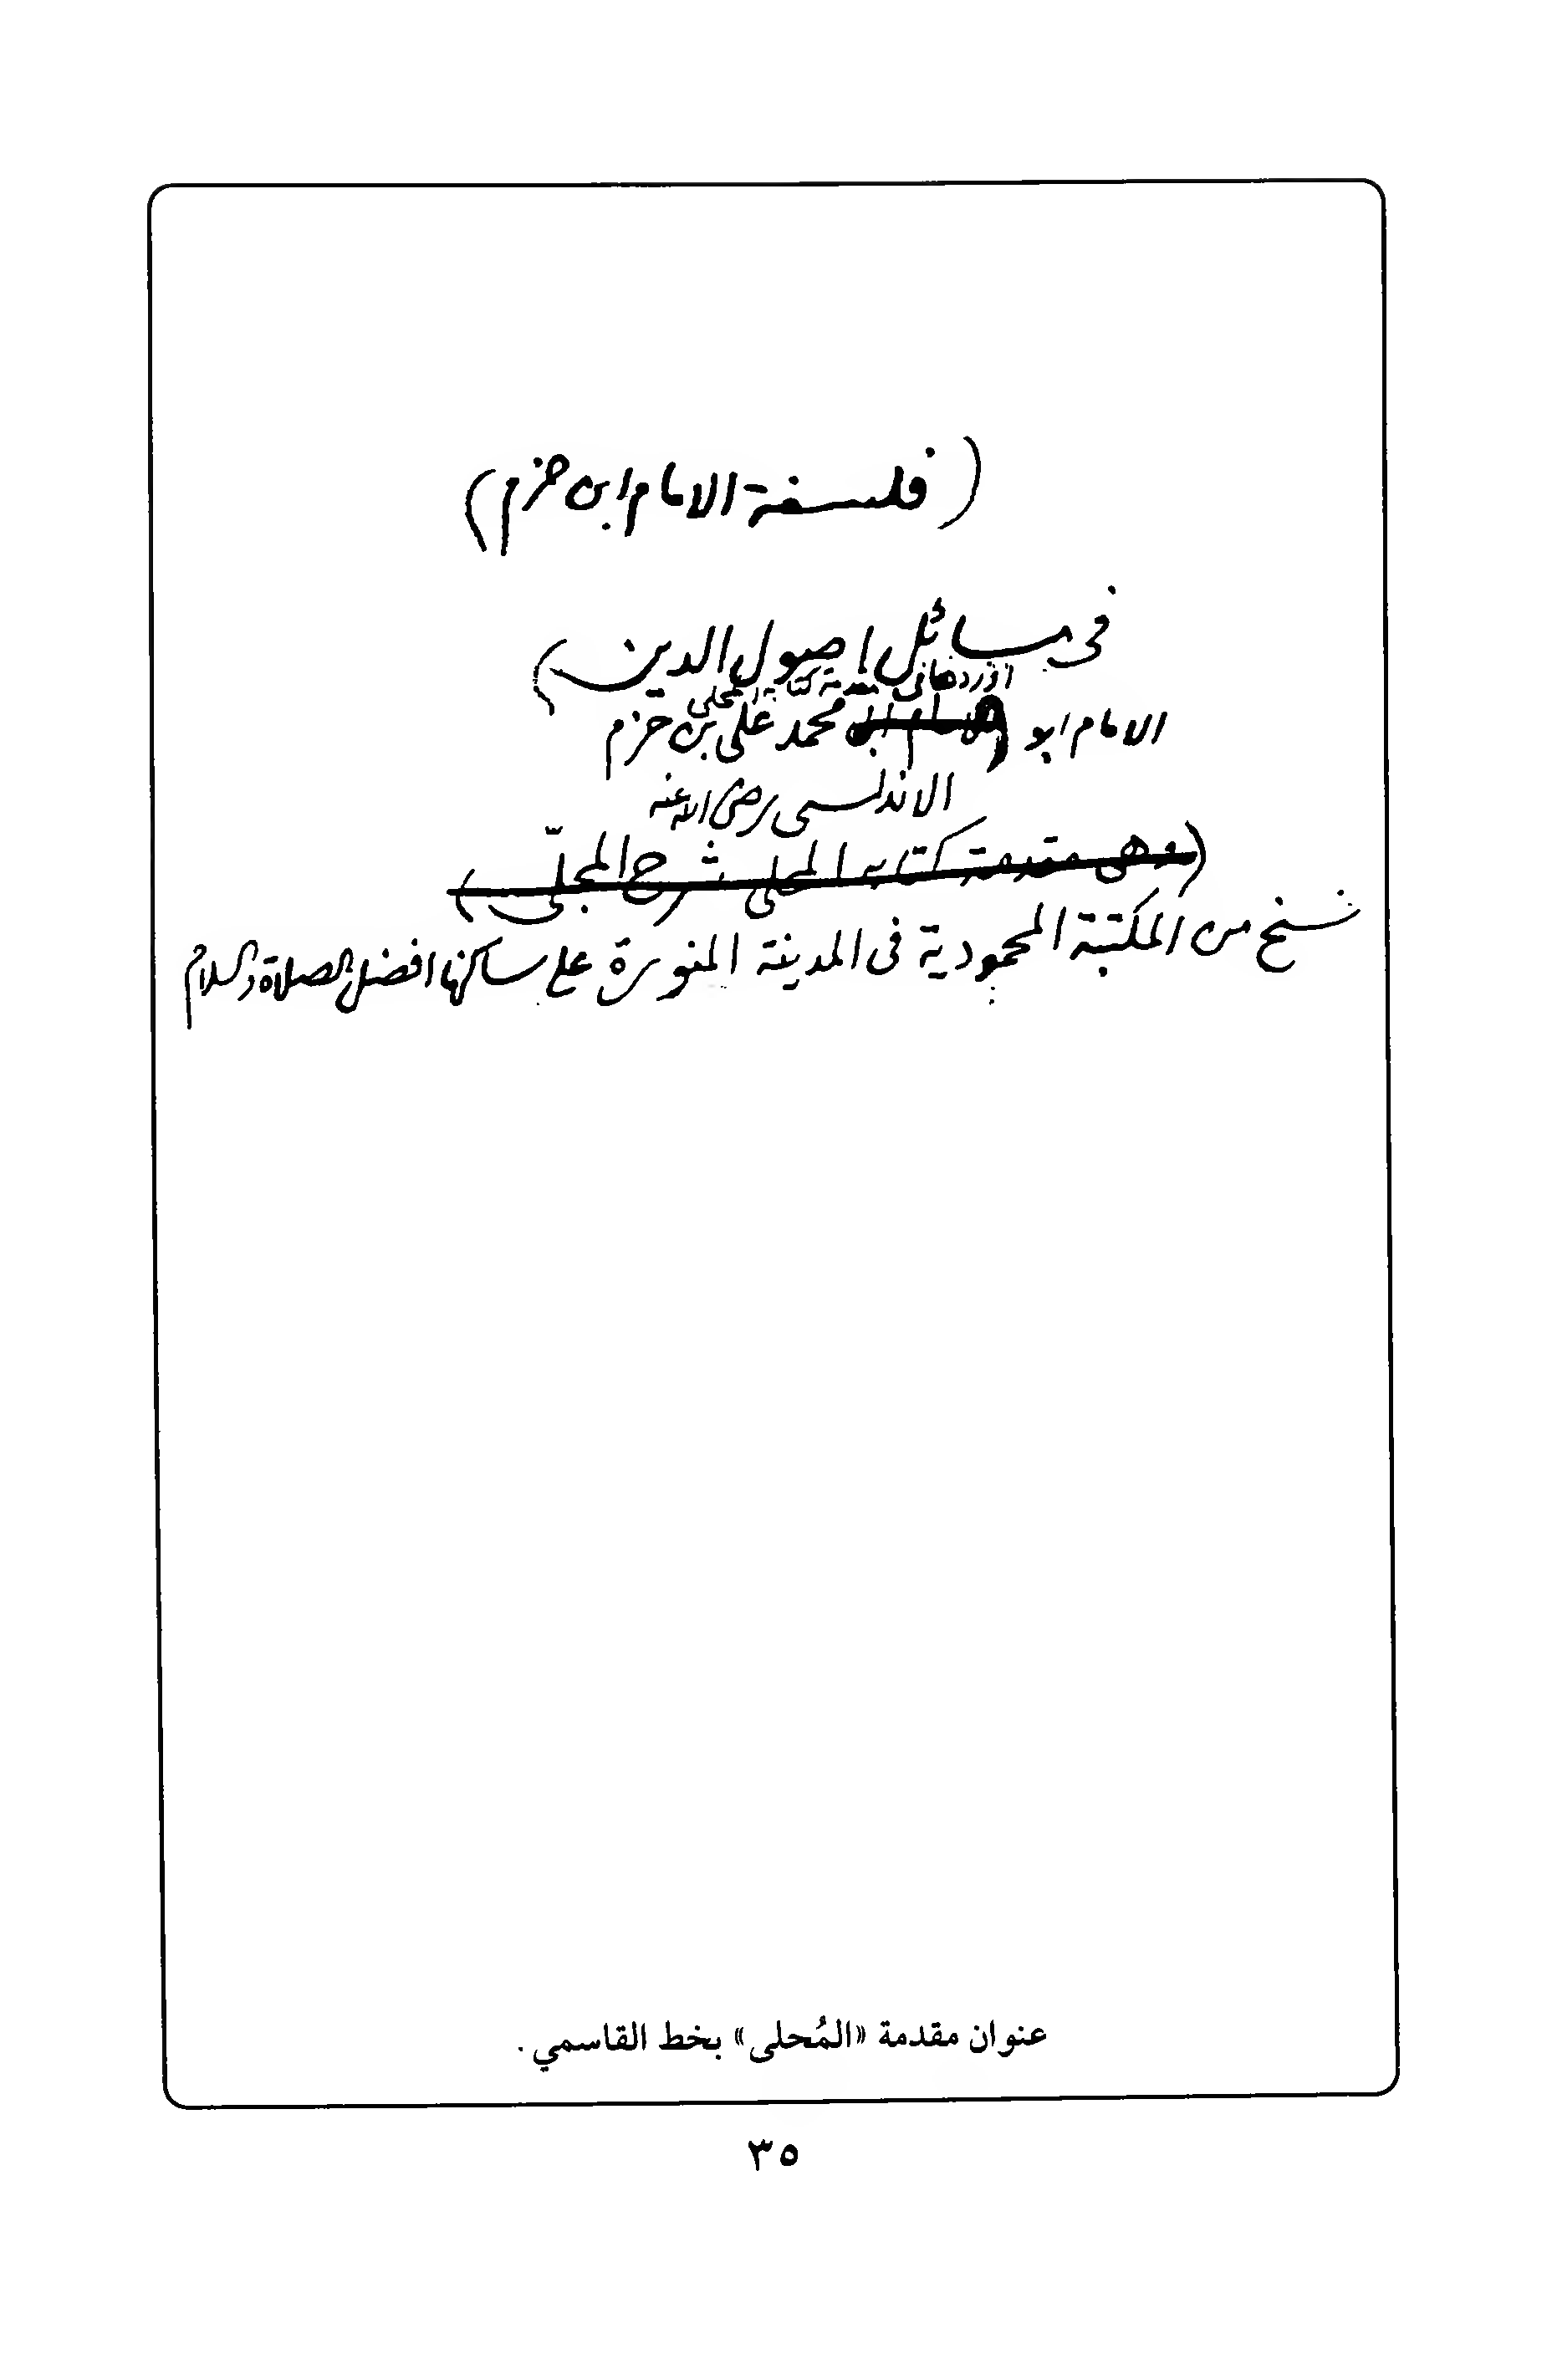 (فلسفة الامام ابن حزم)
في مسائل اصول الدين)
اوردها في مقدمة كتابه المحلى
الامام ابو محمد علي بن حزم
الاندلسي رضي الله عنه
(وهي مقدمة كتابه المحلى شرح المجلّى)
نسخ من المكتبة المحمودية في المدينة المنورة على ساكنها افضل الصلاة والسلام
عنوان مقدمة «المُحلى» بخط القاسمي.
٣٥